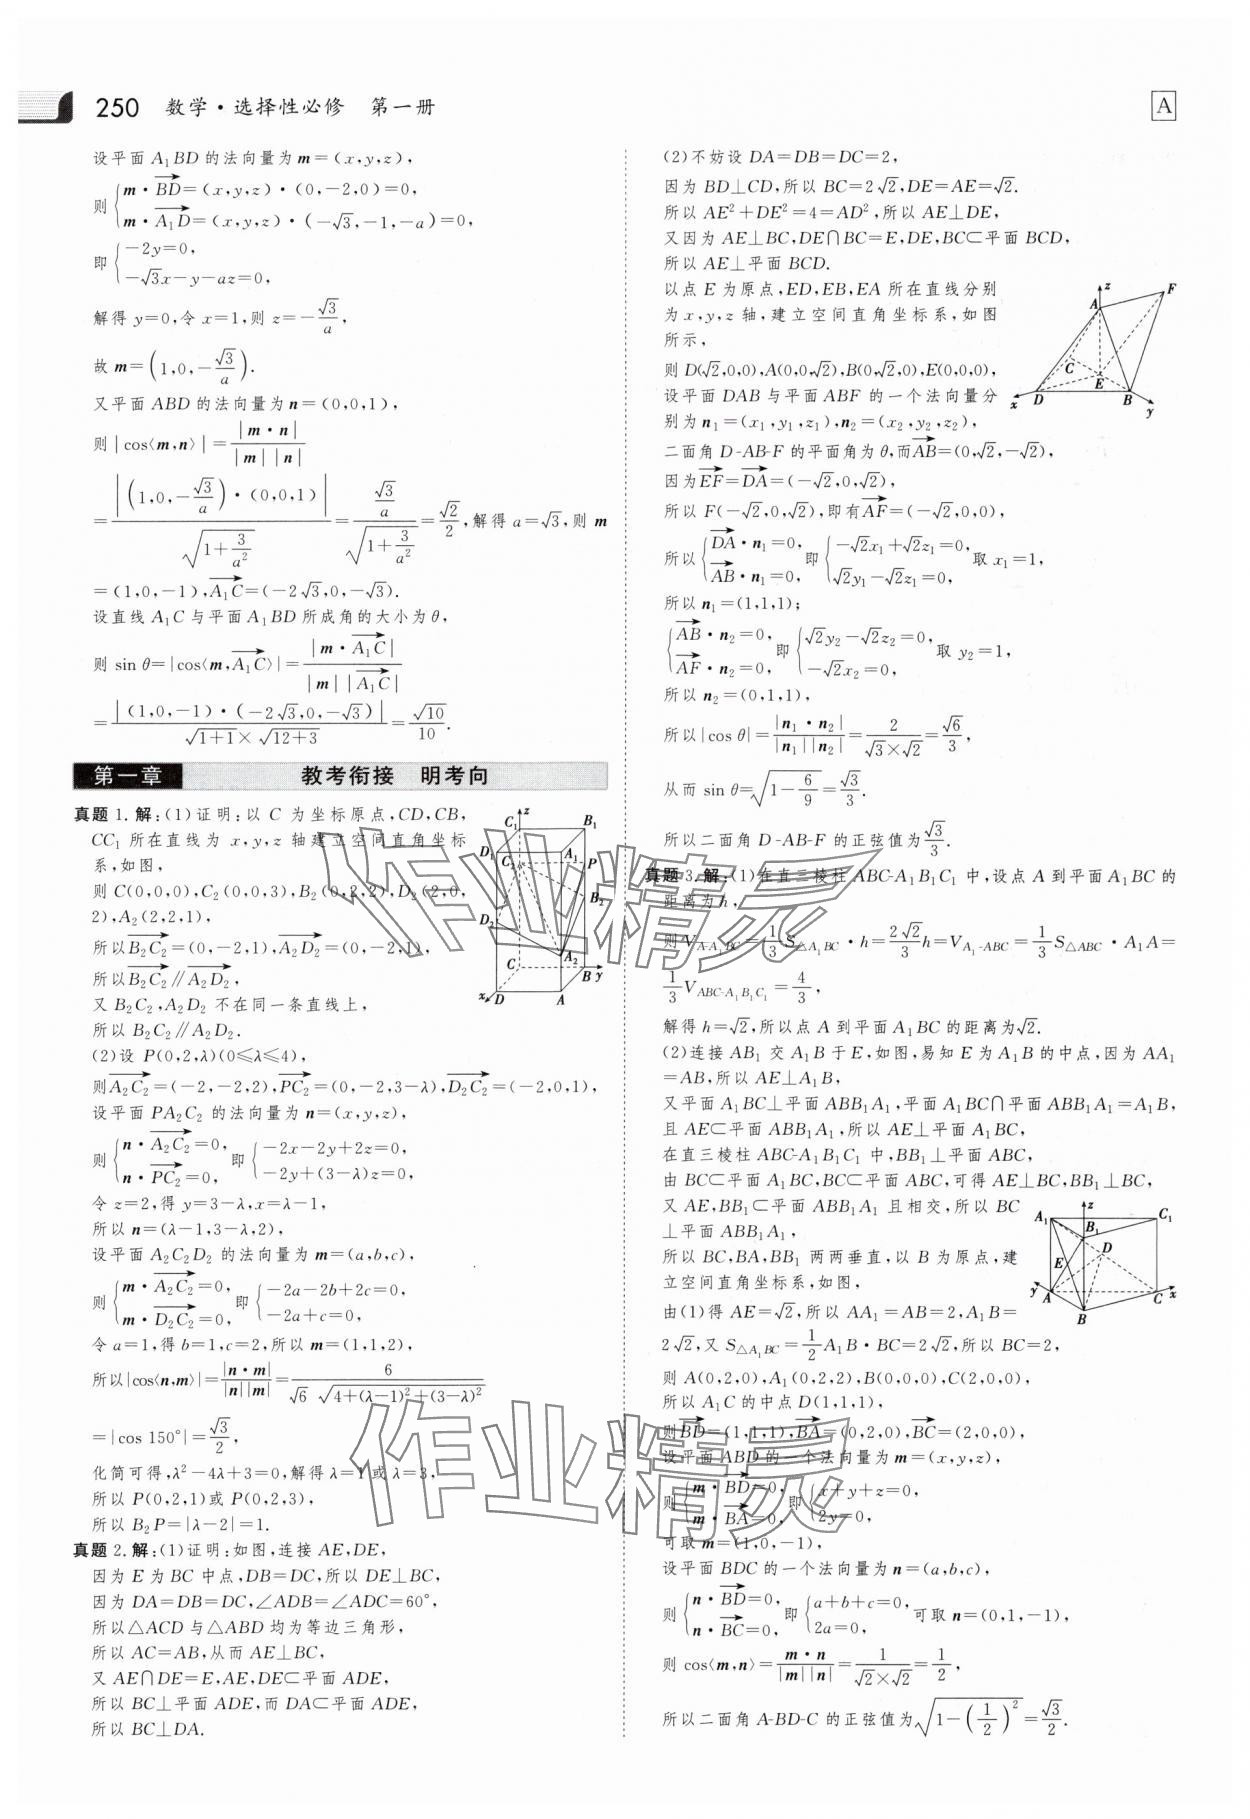 250 数学·选择性必修 第一册
A
设平面 A₁BD 的法向量为 m=(x,y,z),
则{m·BD→=(x,y,z)·(0,-2,0)=0,
m·A₁D→=(x,y,z)·(-√3,-1,-a)=0,
即{-2y=0,
-√3x-y-az=0,
解得 y=0,令 x=1,则 z=-√3/a,
故 m=(1,0,-√3/a).
又平面 ABD 的法向量为 n=(0,0,1),
则|cos⟨m,n⟩|=|m·n|/(|m||n|)
=|(1,0,-√3/a)·(0,0,1)|/√(1+3/a²)=(√3/a)/√(1+3/a²)=√2/2,解得 a=√3,则 m
=(1,0,-1),A₁C→=(-2√3,0,-√3).
设直线 A₁C 与平面 A₁BD 所成角的大小为 θ,
则 sin θ=|cos⟨m,A₁C→⟩|=|m·A₁C→|/(|m||A₁C→|)
=|(1,0,-1)·(-2√3,0,-√3)|/(√(1+1)×√(12+3))=√10/10.
第一章 教考衔接 明考向
真题 1.解:(1)证明:以 C 为坐标原点,CD,CB,
CC₁ 所在直线为 x,y,z 轴建立空间直角坐标
系,如图,
则 C(0,0,0),C₂(0,0,3),B₂(0,2,2),D₂(2,0,
2),A₂(2,2,1),
所以B₂C₂→=(0,-2,1),A₂D₂→=(0,-2,1),
所以B₂C₂→∥A₂D₂→,
又 B₂C₂,A₂D₂ 不在同一条直线上,
所以 B₂C₂∥A₂D₂.
(2)设 P(0,2,λ)(0≤λ≤4),
则A₂C₂→=(-2,-2,2),PC₂→=(0,-2,3-λ),D₂C₂→=(-2,0,1),
设平面 PA₂C₂ 的法向量为 n=(x,y,z),
则{n·A₂C₂→=0,
n·PC₂→=0,
即{-2x-2y+2z=0,
-2y+(3-λ)z=0,
令 z=2,得 y=3-λ,x=λ-1,
所以 n=(λ-1,3-λ,2),
设平面 A₂C₂D₂ 的法向量为 m=(a,b,c),
则{m·A₂C₂→=0,
m·D₂C₂→=0,
即{-2a-2b+2c=0,
-2a+c=0,
令 a=1,得 b=1,c=2,所以 m=(1,1,2),
所以|cos⟨n,m⟩|=|n·m|/(|n||m|)=6/(√6 √(4+(λ-1)²+(3-λ)²))
=|cos 150°|=√3/2,
化简可得,λ²-4λ+3=0,解得 λ=1 或 λ=3,
所以 P(0,2,1)或 P(0,2,3),
所以 B₂P=|λ-2|=1.
真题 2.解:(1)证明:如图,连接 AE,DE,
因为 E 为 BC 中点,DB=DC,所以 DE⊥BC,
因为 DA=DB=DC,∠ADB=∠ADC=60°,
所以△ACD 与△ABD 均为等边三角形,
所以 AC=AB,从而 AE⊥BC,
又 AE∩DE=E,AE,DE⊂平面 ADE,
所以 BC⊥平面 ADE,而 DA⊂平面 ADE,
所以 BC⊥DA.
z C₁ B₁ D₁ C₂ A₁ P B₂ D₂ A₂ C B y x D A
(2)不妨设 DA=DB=DC=2,
因为 BD⊥CD,所以 BC=2√2,DE=AE=√2.
所以 AE²+DE²=4=AD²,所以 AE⊥DE,
又因为 AE⊥BC,DE∩BC=E,DE,BC⊂平面 BCD,
所以 AE⊥平面 BCD.
以点 E 为原点,ED,EB,EA 所在直线分别
为 x,y,z 轴,建立空间直角坐标系,如图
所示,
则 D(√2,0,0),A(0,0,√2),B(0,√2,0),E(0,0,0),
设平面 DAB 与平面 ABF 的一个法向量分
别为 n₁=(x₁,y₁,z₁),n₂=(x₂,y₂,z₂),
二面角 D-AB-F 的平面角为 θ,而AB→=(0,√2,-√2),
因为EF→=DA→=(-√2,0,√2),
所以 F(-√2,0,√2),即有AF→=(-√2,0,0),
所以{DA→·n₁=0,
AB→·n₁=0,
即{-√2x₁+√2z₁=0,
√2y₁-√2z₁=0,
取 x₁=1,
所以 n₁=(1,1,1);
{AB→·n₂=0,
AF→·n₂=0,
即{√2y₂-√2z₂=0,
-√2x₂=0,
取 y₂=1,
所以 n₂=(0,1,1),
所以|cos θ|=|n₁·n₂|/(|n₁||n₂|)=2/(√3×√2)=√6/3,
从而 sin θ=√(1-6/9)=√3/3.
所以二面角 D-AB-F 的正弦值为√3/3.
z F A C E D B x y
真题 3.解:(1)在直三棱柱 ABC-A₁B₁C₁ 中,设点 A 到平面 A₁BC 的
距离为 h,
则 V_{A-A₁BC}=1/3 S_{△A₁BC}·h=(2√2/3)h=V_{A₁-ABC}=1/3 S_{△ABC}·A₁A=
1/3 V_{ABC-A₁B₁C₁}=4/3,
解得 h=√2,所以点 A 到平面 A₁BC 的距离为√2.
(2)连接 AB₁ 交 A₁B 于 E,如图,易知 E 为 A₁B 的中点,因为 AA₁
=AB,所以 AE⊥A₁B,
又平面 A₁BC⊥平面 ABB₁A₁,平面 A₁BC∩平面 ABB₁A₁=A₁B,
且 AE⊂平面 ABB₁A₁,所以 AE⊥平面 A₁BC,
在直三棱柱 ABC-A₁B₁C₁ 中,BB₁⊥平面 ABC,
由 BC⊂平面 A₁BC,BC⊂平面 ABC,可得 AE⊥BC,BB₁⊥BC,
又 AE,BB₁⊂平面 ABB₁A₁ 且相交,所以 BC
⊥平面 ABB₁A₁,
所以 BC,BA,BB₁ 两两垂直,以 B 为原点,建
立空间直角坐标系,如图,
由(1)得 AE=√2,所以 AA₁=AB=2,A₁B=
2√2,又 S_{△A₁BC}=1/2 A₁B·BC=2√2,所以 BC=2,
则 A(0,2,0),A₁(0,2,2),B(0,0,0),C(2,0,0),
所以 A₁C 的中点 D(1,1,1),
则BD→=(1,1,1),BA→=(0,2,0),BC→=(2,0,0),
设平面 ABD 的一个法向量为 m=(x,y,z),
则{m·BD→=0,
m·BA→=0,
即{x+y+z=0,
2y=0,
可取 m=(1,0,-1),
设平面 BDC 的一个法向量为 n=(a,b,c),
则{n·BD→=0,
n·BC→=0,
即{a+b+c=0,
2a=0,
可取 n=(0,1,-1),
则 cos⟨m,n⟩=m·n/(|m||n|)=1/(√2×√2)=1/2,
所以二面角 A-BD-C 的正弦值为√(1-(1/2)²)=√3/2.
A₁ z C₁ B₁ D E y A C x B
作业精灵
作业精灵